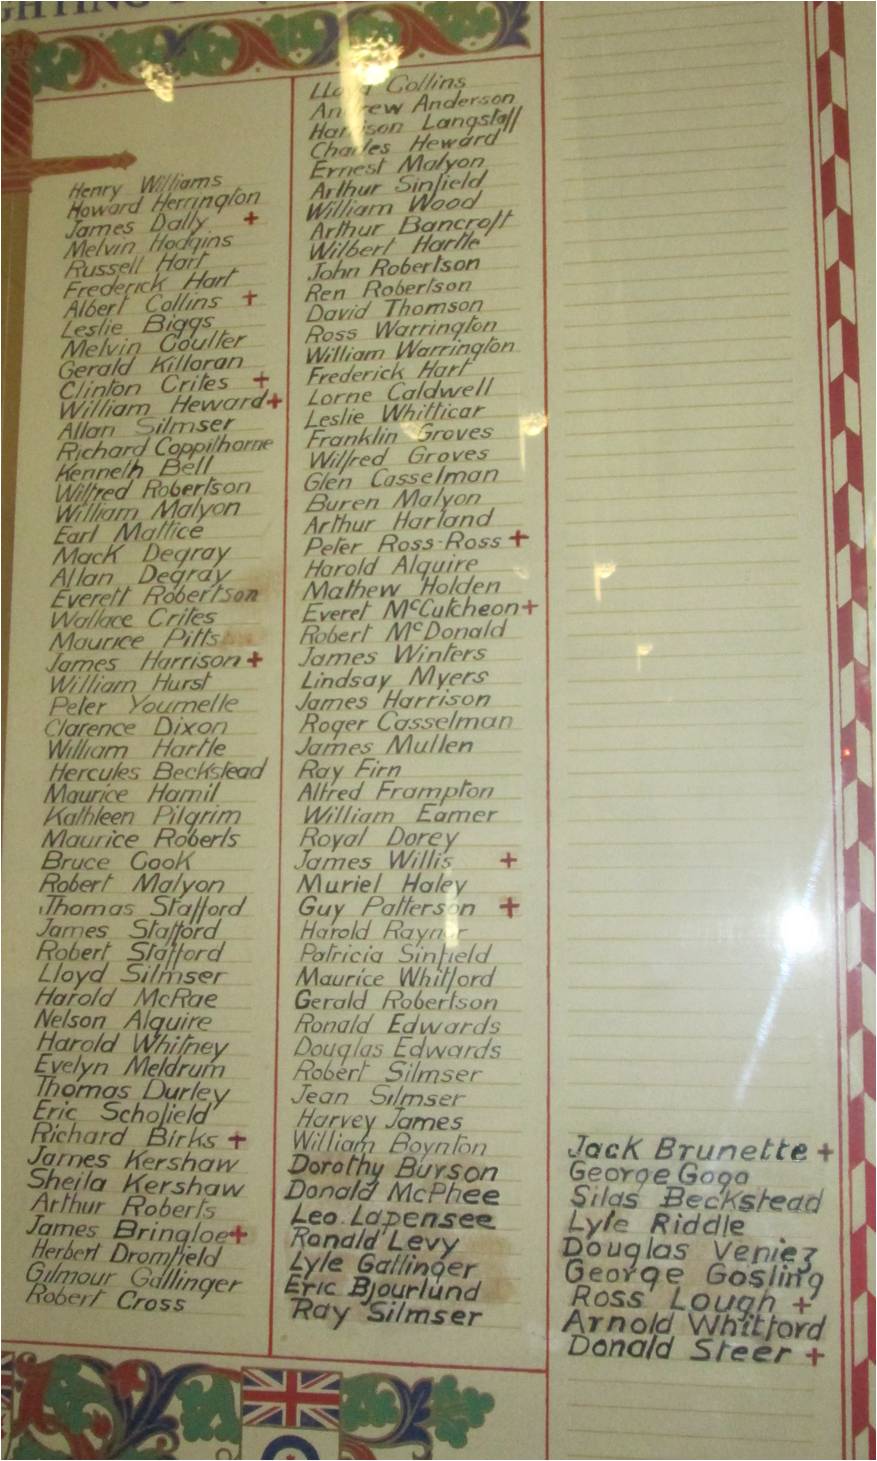 Henry Williams
Howard Herrington
James Dally +
Melvin Hodgins
Russell Hart
Frederick Hart
Albert Collins +
Leslie Biggs
Melvin Coulter
Gerald Killoran
Clinton Crites +
William Heward +
Allan Silmser
Richard Coppilhorne
Kenneth Bell
Wilfred Robertson
William Malyon
Earl Mattice
Mack Degray
Allan Degray
Everett Robertson
Wallace Crites
Maurice Pitts
James Harrison +
William Hurst
Peter Youmelle
Clarence Dixon
William Hartle
Hercules Beckstead
Maurice Hamil
Kathleen Pilgrim
Maurice Roberts
Bruce Cook
Robert Malyon
Thomas Stafford
James Stafford
Robert Stafford
Lloyd Silmser
Harold McRae
Nelson Alguire
Harold Whitney
Evelyn Meldrum
Thomas Durley
Eric Schofield
Richard Birks +
James Kershaw
Sheila Kershaw
Arthur Roberts
James Bringloe +
Herbert Dromfield
Gilmour Gallinger
Robert Cross
Collins
Andrew Anderson
Harrison Langstaff
Charles Heward
Ernest Malyon
Arthur Sinfield
William Wood
Arthur Bancroft
Wilbert Hartle
John Robertson
Ren Robertson
David Thomson
Ross Warrington
William Warrington
Frederick Hart
Lorne Caldwell
Leslie Whitticar
Franklin Groves
Wilfred Groves
Glen Casselman
Buren Malyon
Arthur Harland
Peter Ross-Ross +
Harold Alguire
Mathew Holden
Everet McCutcheon +
Robert McDonald
James Winters
Lindsay Myers
James Harrison
Roger Casselman
James Mullen
Ray Firn
Alfred Frampton
William Eamer
Royal Dorey
James Willis +
Muriel Haley
Guy Patterson +
Harold Raynor
Patricia Sinfield
Maurice Whitford
Gerald Robertson
Ronald Edwards
Douglas Edwards
Robert Silmser
Jean Silmser
Harvey James
William Boynton
Dorothy Burson
Donald McPhee
Leo Lapensee
Ronald Levy
Lyle Gallinger
Eric Bjourlund
Ray Silmser
Jack Brunette +
George Gogo
Silas Beckstead
Lyle Riddle
Douglas Veniez
George Gosling
Ross Lough +
Arnold Whitford
Donald Steer +